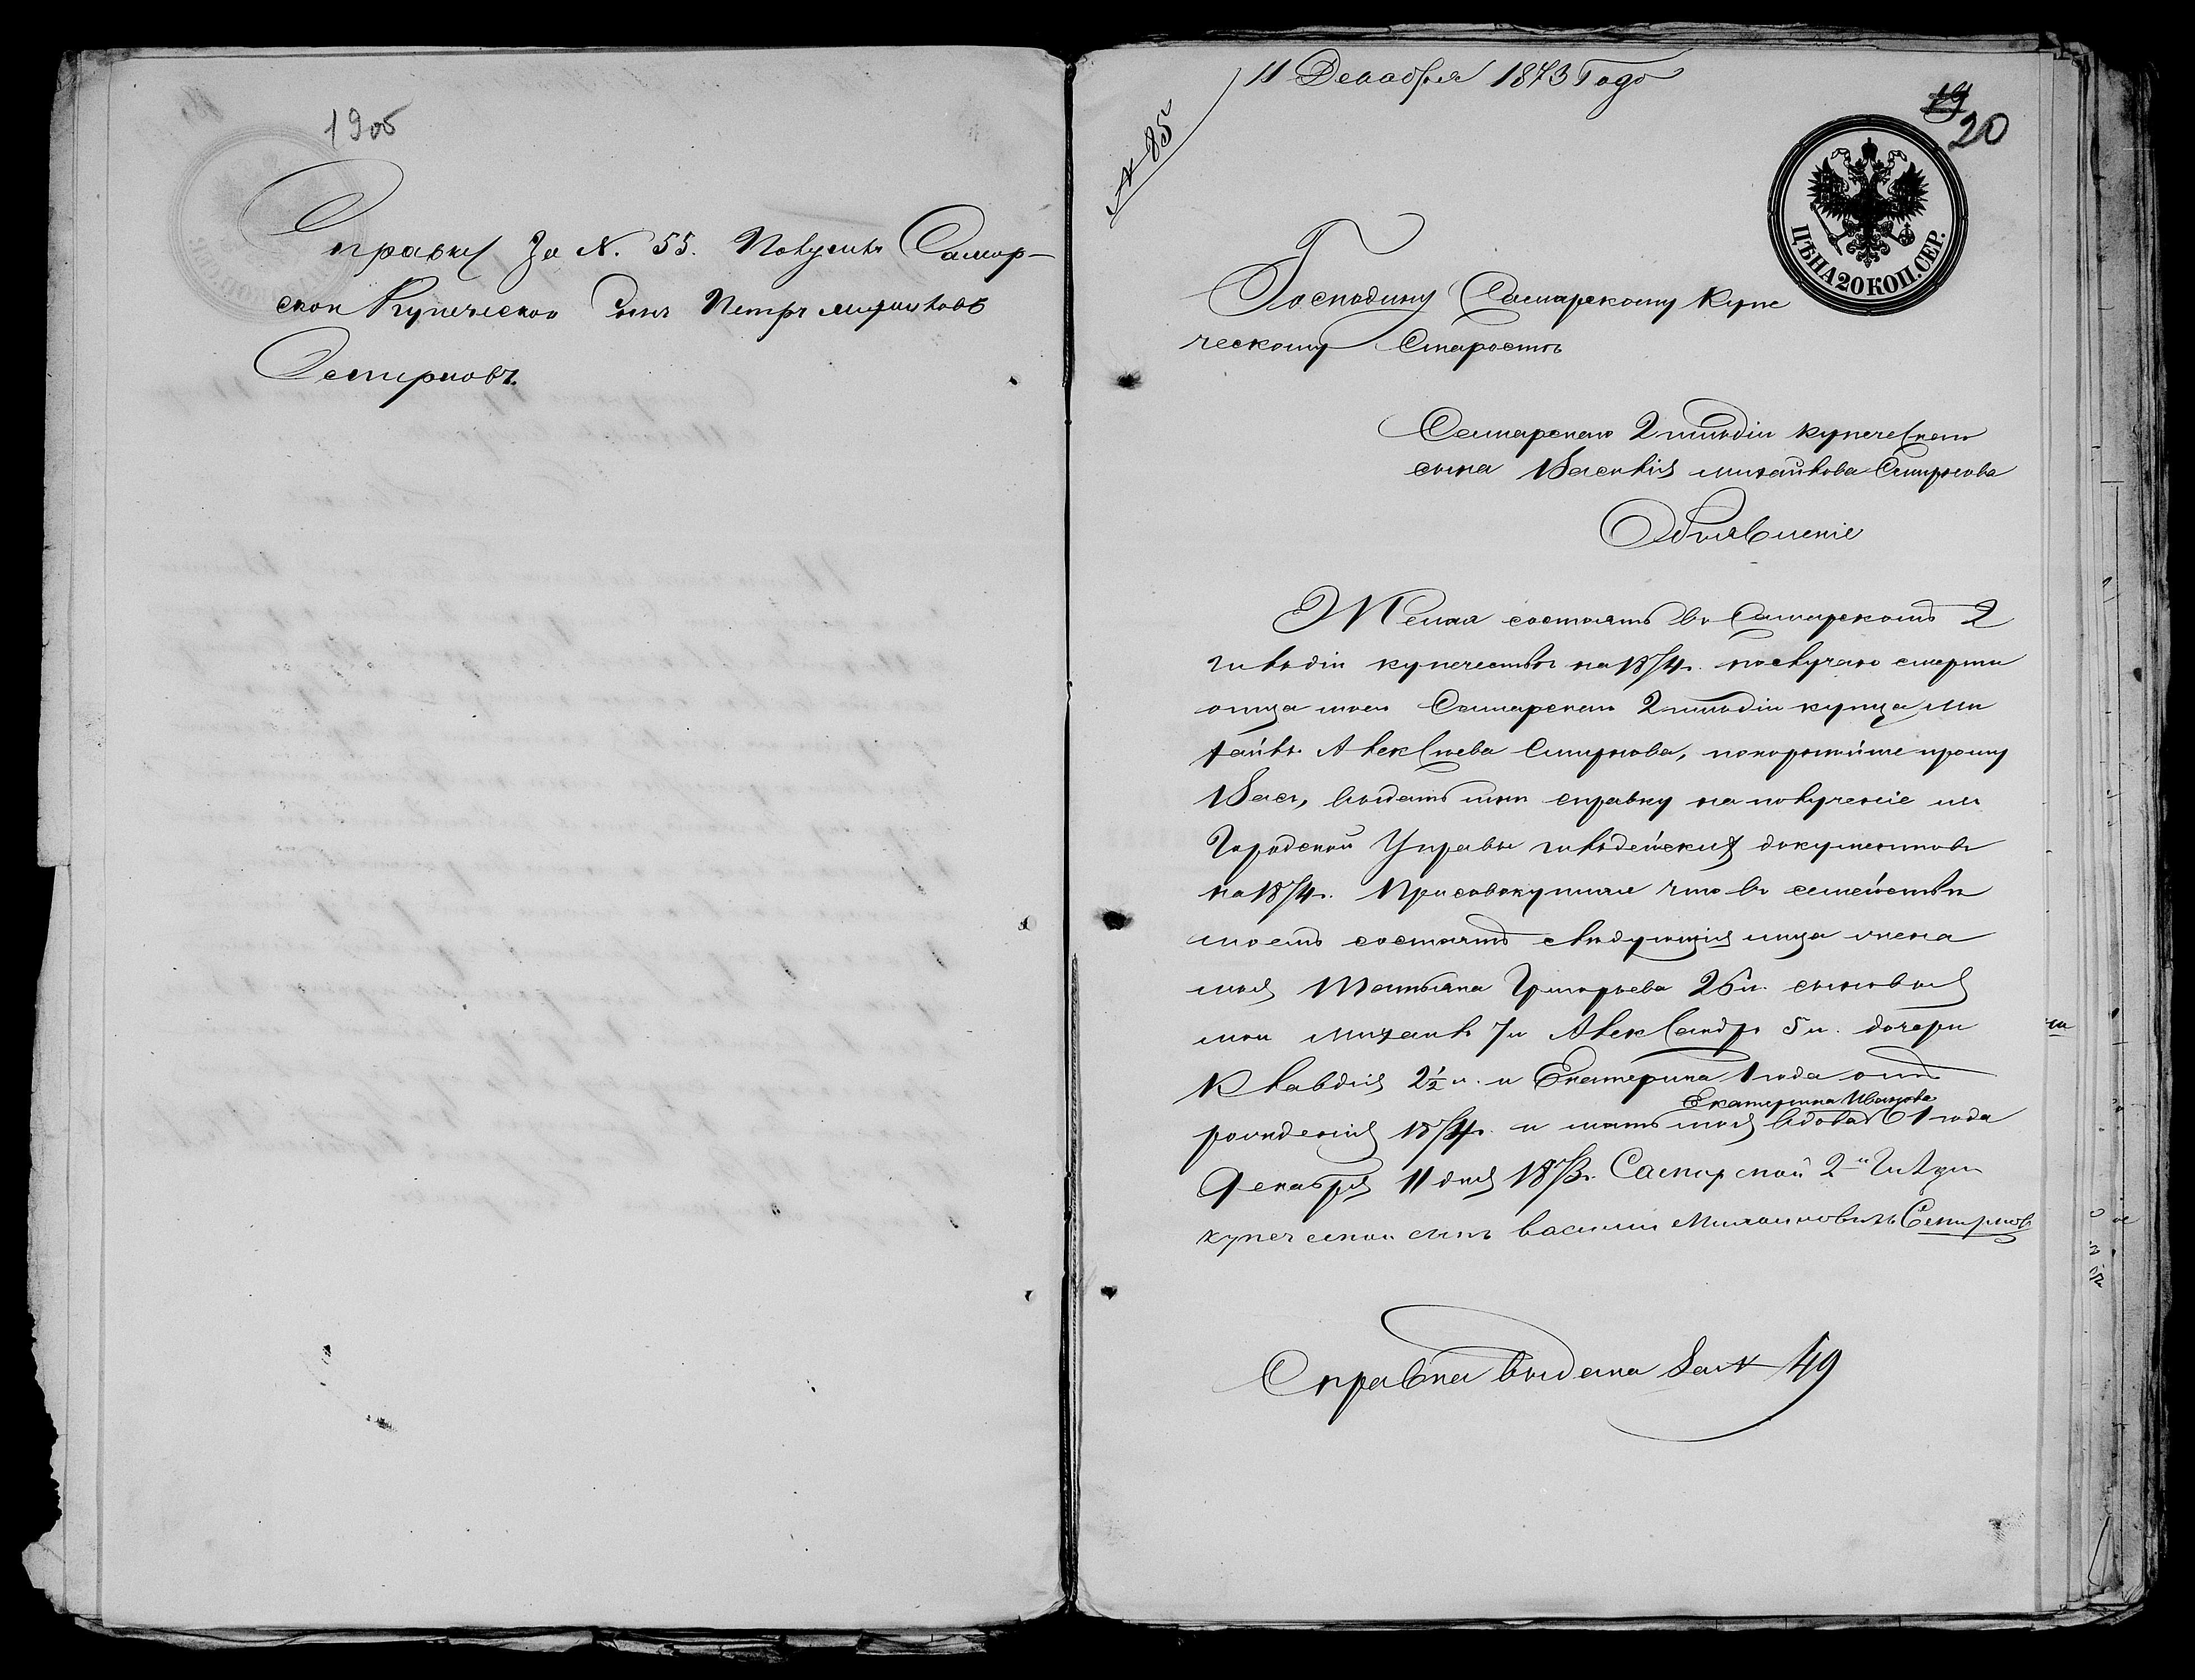 19об
Справку За N. 55. Получилъ Самар-
ской Купеческой Сынъ Петръ михаиловъ
Смирновъ.
11 Декабря 1873 Года
N 85
19
20
ЦѢНА 20 КОП. СЕР.
Господину Самарскому Купе
ческому Старостѣ
Самарскаго 2 гильдіи купеческаго
сына Василія михайлова Смирнова
Объявленіе
Желая состоять въ Самарскомъ 2
гильдіи купечествѣ на 1874г. послучаю смерти
отца моего Самарскаго 2 гильдіи купца Ми
хайлы Алексѣева Смирнова, покорнѣйше прошу
Васъ, выдать мнѣ справку на полученіе изъ
Городской Управы гильдейскихъ документовъ
на 1874г. Присовокупляя что въ семействѣ
моемъ состоятъ слѣдующія лица жена
моя Татьяна Григорьева 26 л. сыновья
мои михаилъ 7 л Александръ 5 л. дочери
Клавдия 2½ л. и Екатерина 1 года отъ
Екатерина Иванова
рожденія 1874г. и мать моя вдова 61 года
Декабря 11 дня 1873г. Самарской 2й Гильди
купеческой сынъ василии Михаиловичь Смирновъ
Справка выдана за N 49